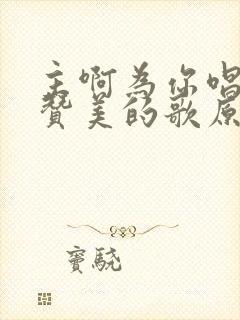 主啊为你唱
赞美的歌原
窦骁